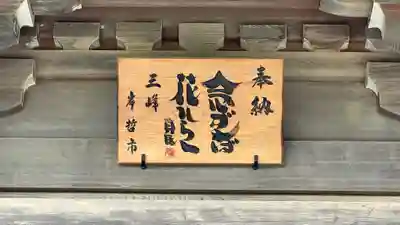 奉納
念ずば
花ひらく
三峰
岸哲市